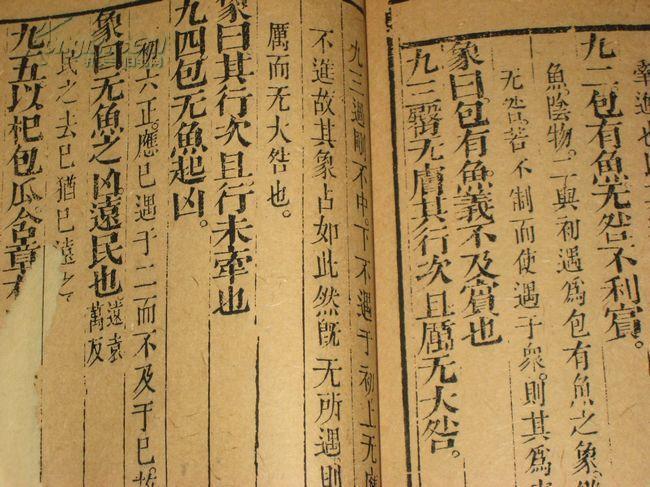 進也
九二包有魚无咎不利賓。
魚陰物。二與初遇爲包有魚之象。
无咎若不制而使遇于衆。則其爲
象曰包有魚義不及賓也
九三臀无膚其行次且厲无大咎。
九三過剛不中。下不遇于初上无應
不進故其象占如此然旣无所遇。則
厲而无大咎也。
象曰其行次且行未牽也
九四包无魚起凶。
初六正應已遇于二而不及于已。故
象曰无魚之凶遠民也 遠袁萬反
民之去已猶已遠之
九五以杞包瓜含章